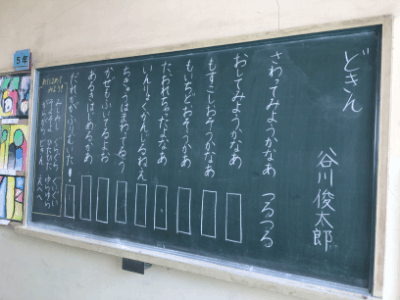 どきん
谷川俊太郎
さわってみようかなあ つるつる
おしてみようかなあ
もすこしおそうかなあ
もいちどおそうかあ
たおれちゃったよなあ
いんりょくかんじるねえ
ちきゅうはまわってるぅ
かぜもふいてるよお
あるきはじめるかあ
だれかがふりむいた!
5年